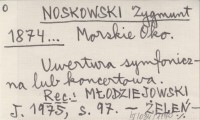 NOSKOWSKI Zygmunt
1874... Morskie Oko.
Uwertura symfonicz-
na lub koncertowa.
Rec.: MŁODZIEJOWSKI
J. 1975, s. 97. – ŻELEŃ-